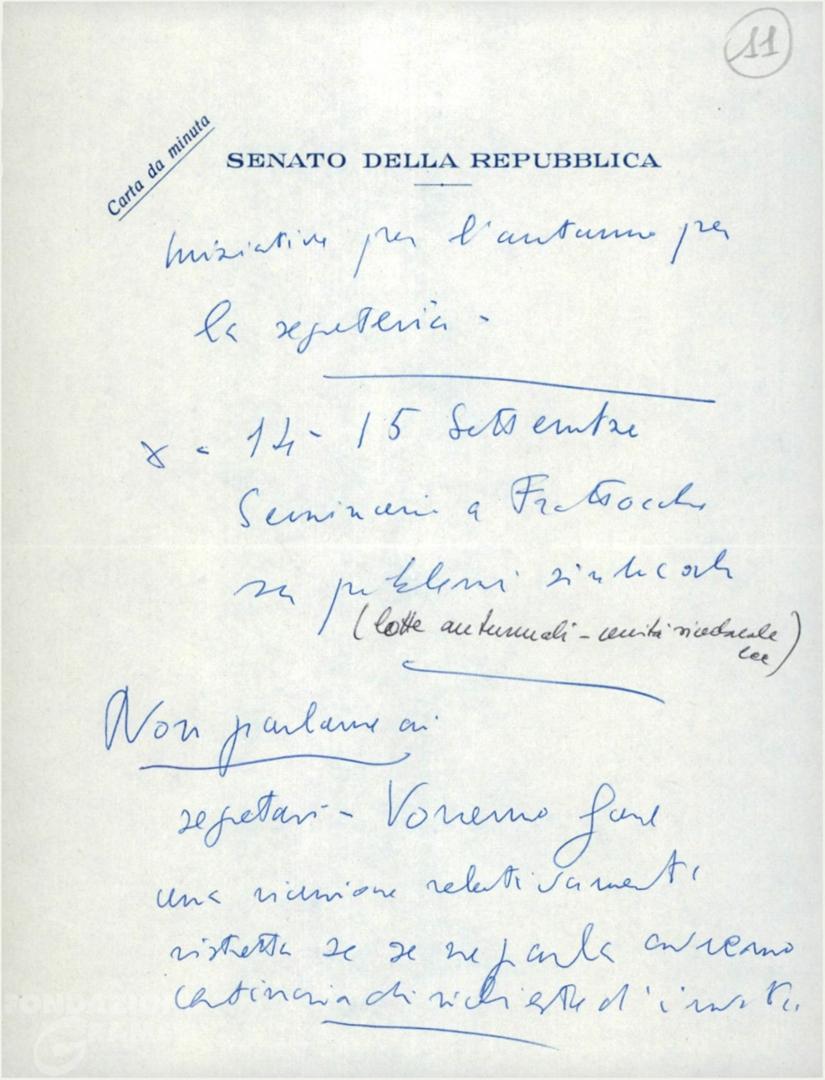 11
Carta da minuta
SENATO DELLA REPUBBLICA
Iniziative per l'autunno per
la segreteria -
x - 14 - 15 Settembre
Seminario a Frattocchie
su problemi sindacali
(lotte autunnali - unità sindacale
ecc)
Non parlarne ai
segretari - Vorremo fare
una riunione relativamente
ristretta se se ne parla avremo
centinaia di richieste d'invito.
FONDAZIONE
GRAMSCI